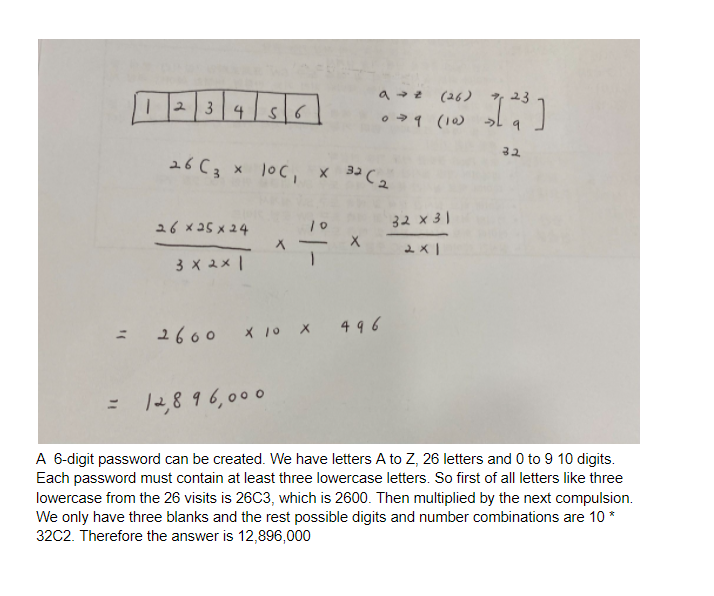 1 2 3 4 5 6
a → z (26) → 23
0 → 9 (10) → 9
32
26C3 × 10C1 × 32C2
26 × 25 × 24 / 3 × 2 × 1 × 10 / 1 × 32 × 31 / 2 × 1
= 2600 × 10 × 496
= 12,896,000
A  6-digit password can be created. We have letters A to Z, 26 letters and 0 to 9 10 digits.
Each password must contain at least three lowercase letters. So first of all letters like three
lowercase from the 26 visits is 26C3, which is 2600. Then multiplied by the next compulsion.
We only have three blanks and the rest possible digits and number combinations are 10 *
32C2. Therefore the answer is 12,896,000